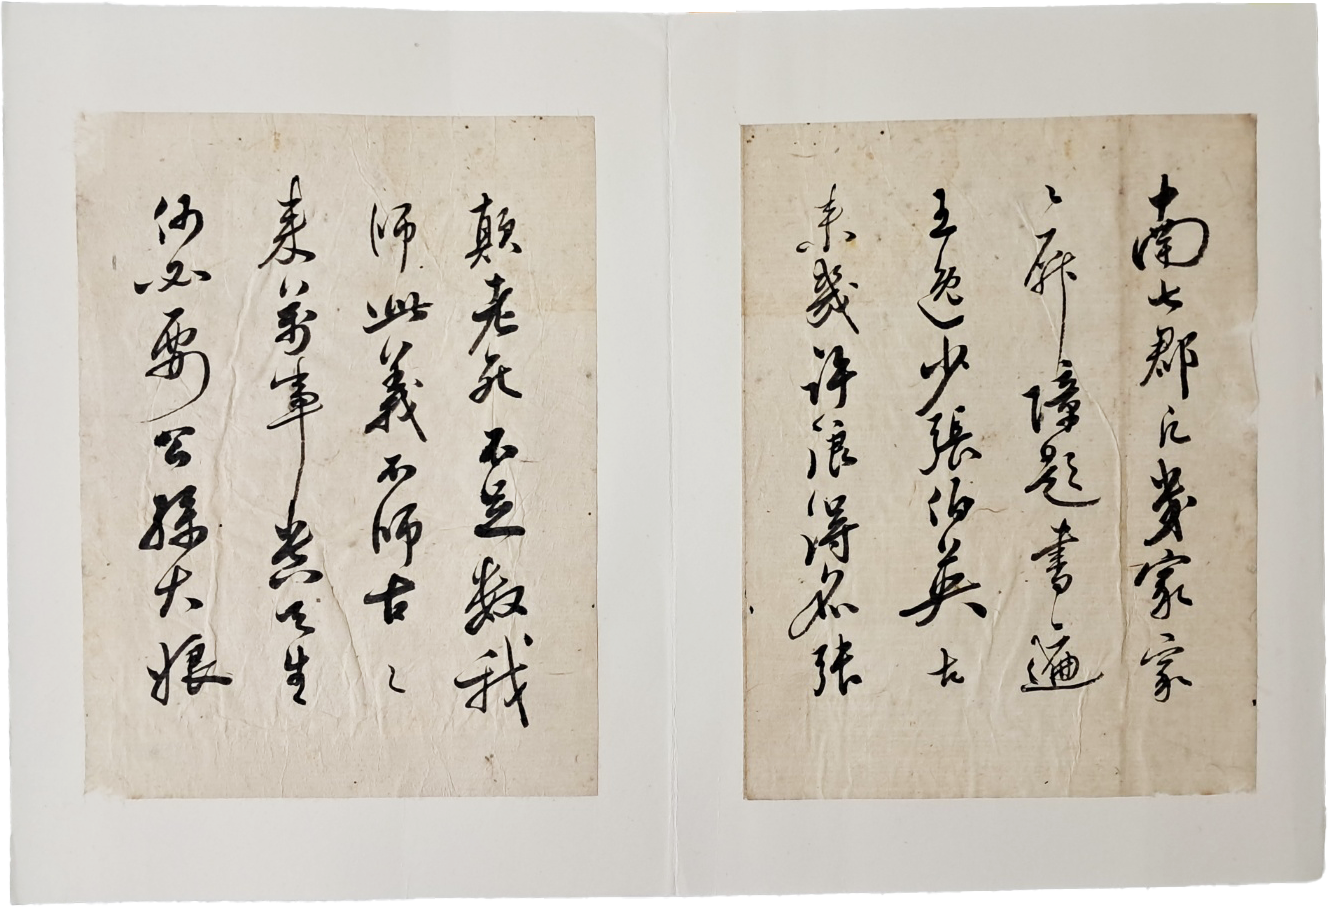 南七郡凡幾家家
〻屏障題書遍
王逸少張伯英古
来幾許浪得名張
顛老死不足數我
師此義不師古〻
来萬事貴天生
何必要公孫大娘